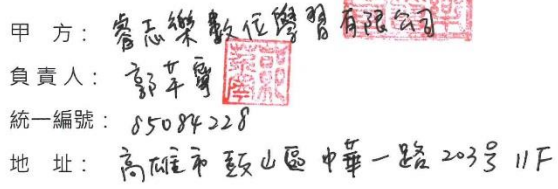 甲方：睿志樂數位學習有限公司
負責人：郭芊寧
統一編號：85084228
地址：高雄市鼓山區中華一路203号11F